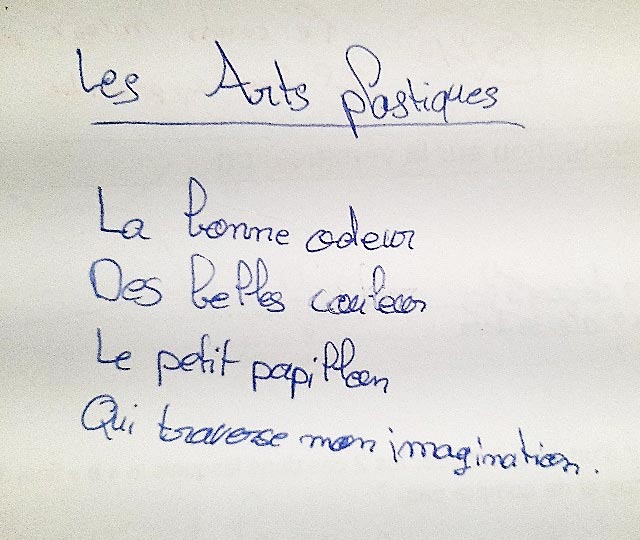 Les Arts plastiques
La bonne odeur
Des belles couleurs
Le petit papillon
Qui traverse mon imagination.